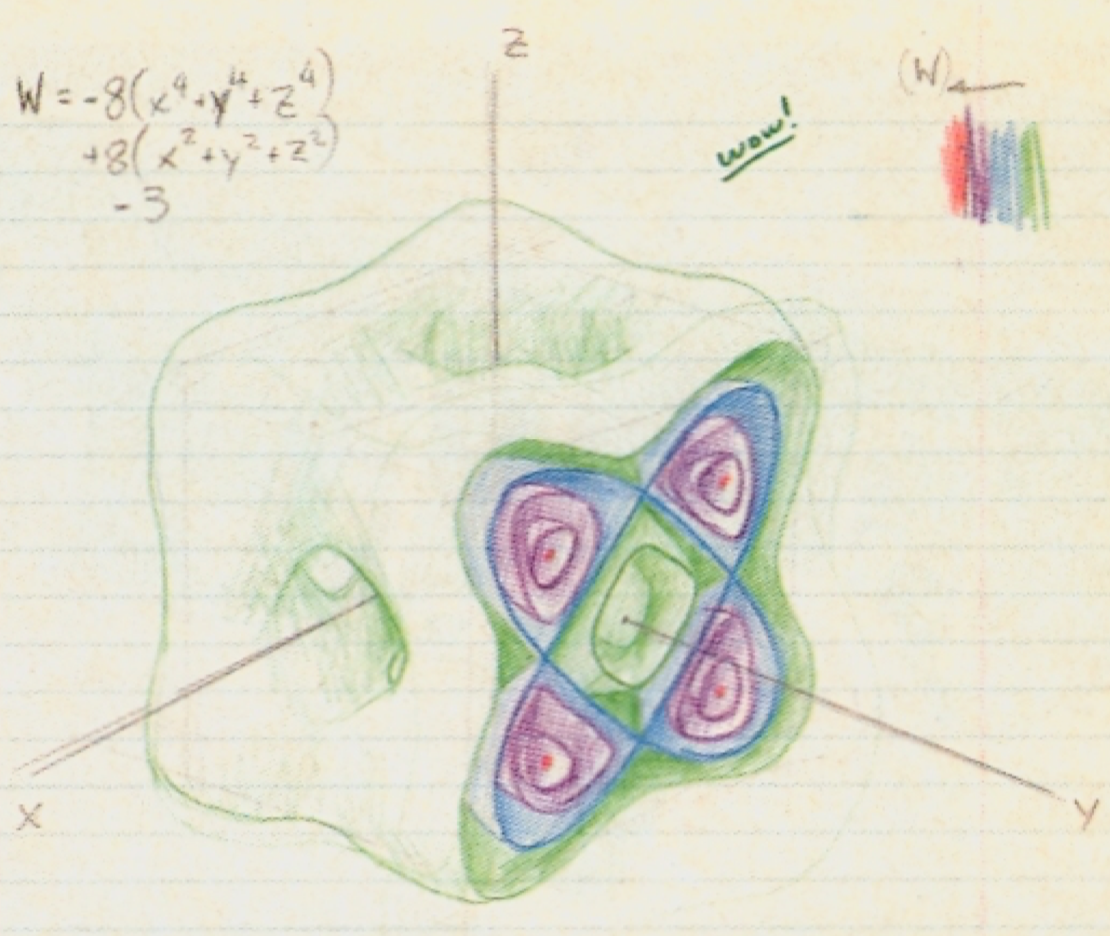 W = -8(x⁴+y⁴+z⁴)
+8(x²+y²+z²)
-3
z
wow!
(W)
x
y